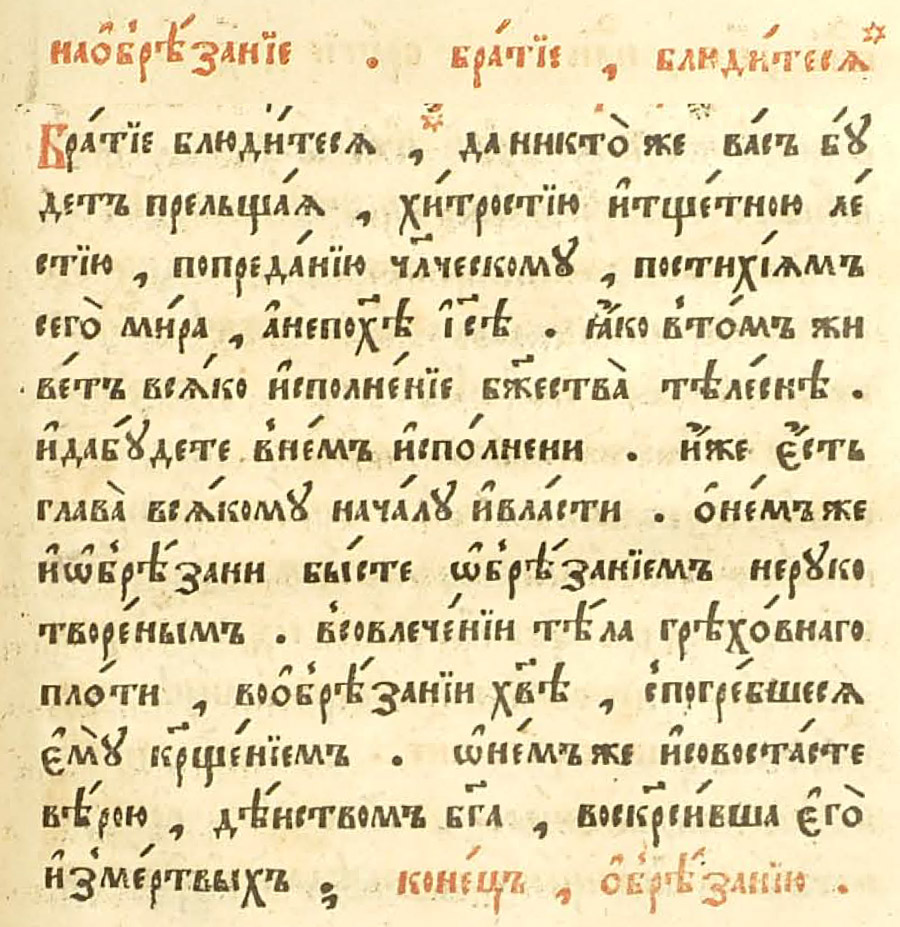 наѻ҆брѣ́занїе . бра́тїе , блюди́тесѧ
Бра́тїе блюди́тесѧ , да никто̀ же ва́съ бꙋ́
детъ прельща́ѧ , хи́тростїю и҆тще́тною ле́
стїю , попреда́нїю чл҃ческомꙋ , постихі́ѧмъ
сего̀ ми́ра , а҆непохс҃ѣ і҆с҃ѣ . ꙗ҆́ко в̾то́мъ жи
ве́тъ всѧ́ко и҆сполне́нїе бж҃ества̀ тѣле́снѣ .
и҆дабꙋ́дете в̾не́мъ и҆спо́лнени . и҆́же є҆́сть
глава̀ всѧ́комꙋ нача́лꙋ и҆вла́сти . ѻ҆не́мъ же
и҆ѡ҆брѣ́зани бы́сте ѡ҆брѣ́занїемъ нерꙋко
творе́нымъ . в̾совлече́нїи тѣ́ла грѣхо́внаго
пло́ти , воѻ҆брѣ́занїи хв҃ѣ , с̾погре́бшесѧ
є҆мꙋ̀ кр҃ще́нїемъ . ѡ҆не́мъ же и҆совоста́сте
вѣ́рою , дѣ́йством бг҃а , воскр҃си́вша є҆го̀
и҆з̾ме́ртвыхъ ; коне́цъ , ѻ҆брѣ́занїю .